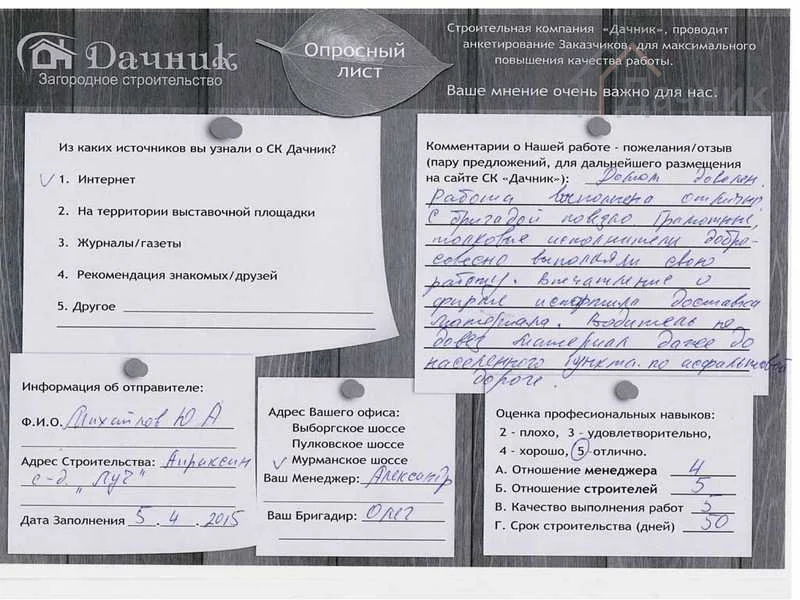 Дачник
Загородное строительство
Опросный
лист
Строительная компания «Дачник», проводит
анкетирование Заказчиков, для максимального
повышения качества работы.
Ваше мнение очень важно для нас.
Дачник
Из каких источников вы узнали о СК Дачник?
✓ 1. Интернет
2. На территории выставочной площадки
3. Журналы/газеты
4. Рекомендация знакомых/друзей
5. Другое
Комментарии о Нашей работе - пожелания/отзыв
(пару предложений, для дальнейшего размещения
на сайте СК «Дачник»): Домом доволен.
Работа выполнена отлично.
С бригадой повезло. Грамотные,
толковые исполнители добро-
совесно выполняли свою
работу. Впечатление о
фирме испортила доставка
материала. Водитель не
довез материал даже до
населенного пункта по асфальтовой
дороге.
Информация об отправителе:
Ф.И.О. Михайлов Ю А
Адрес Строительства: Апраксин
с-д. „Луч"
Дата Заполнения 5 . 4 . 2015
Адрес Вашего офиса:
Выборгское шоссе
Пулковское шоссе
✓ Мурманское шоссе
Ваш Менеджер: Александр
Ваш Бригадир: Олег
Оценка профессиональных навыков:
2 - плохо, 3 - удовлетворительно,
4 - хорошо, 5 - отлично.
А. Отношение менеджера 4
Б. Отношение строителей 5
В. Качество выполнения работ 5
Г. Срок строительства (дней) 50